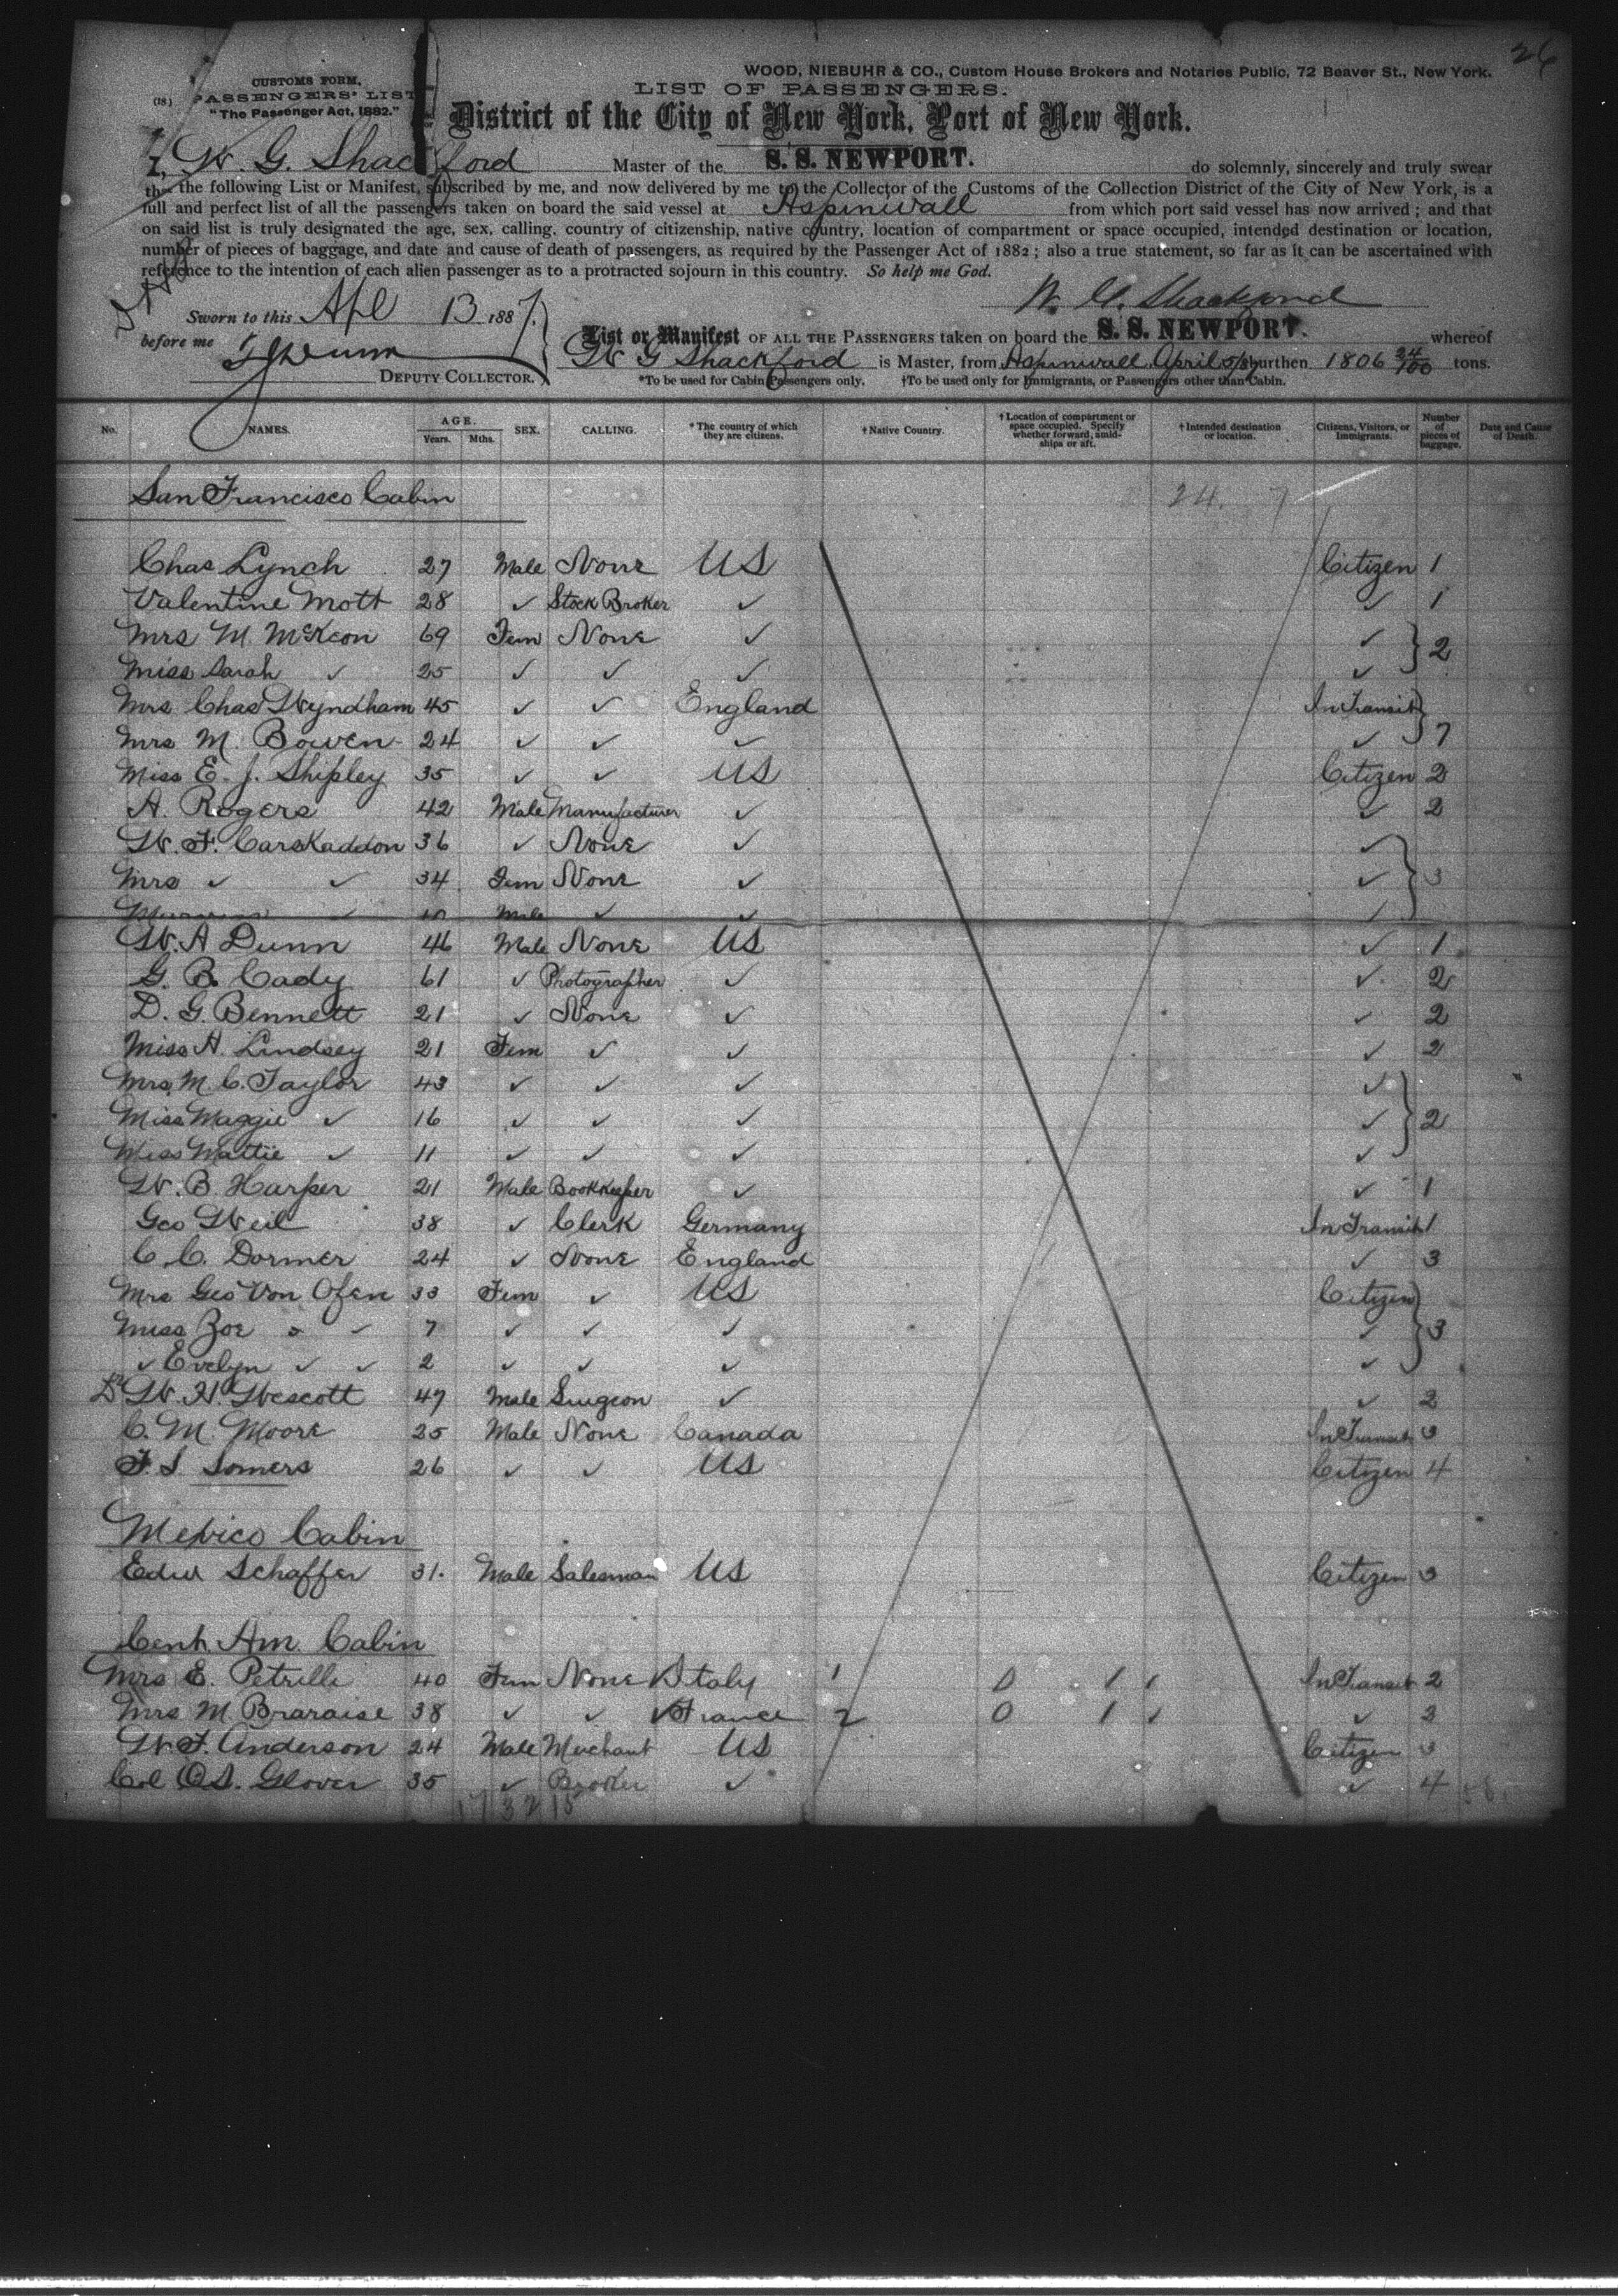 26
WOOD, NIEBUHR & CO., Custom House Brokers and Notaries Public, 72 Beaver St., New York.
CUSTOMS FORM,
(18) PASSENGERS' LIST
"The Passenger Act, 1882."
LIST OF PASSENGERS.
District of the City of New York, Port of New York.
I, W. G. Shackford Master of the S. S. NEWPORT. do solemnly, sincerely and truly swear
that the following List or Manifest, subscribed by me, and now delivered by me to the Collector of the Customs of the Collection District of the City of New York, is a
full and perfect list of all the passengers taken on board the said vessel at Aspinwall from which port said vessel has now arrived; and that
on said list is truly designated the age, sex, calling, country of citizenship, native country, location of compartment or space occupied, intended destination or location,
number of pieces of baggage, and date and cause of death of passengers, as required by the Passenger Act of 1882; also a true statement, so far as it can be ascertained with
reference to the intention of each alien passenger as to a protracted sojourn in this country. So help me God.
W. G. Shackford
Sworn to this Apl 13 1887.
before me
DEPUTY COLLECTOR.
List or Manifest OF ALL THE PASSENGERS taken on board the S. S. NEWPORT. whereof
W G Shackford is Master, from Aspinwall April 5/87 burthen 1806 34/100 tons.
*To be used for Cabin Passengers only. †To be used only for Immigrants, or Passengers other than Cabin.
No. NAMES. AGE. Years. Mths. SEX. CALLING. *The country of which they are citizens. †Native Country. †Location of compartment or space occupied. Specify whether forward, amidships or aft. †Intended destination or location. Citizens, Visitors, or Immigrants. Number of pieces of baggage. Date and Cause of Death.
San Francisco Cabin 24. 7
Chas Lynch 27 Male None US Citizen 1
Valentine Mott 28 ✓ Stock Broker ✓ ✓ 1
Mrs M. McKeon 69 Fem None ✓ ✓ } 2
Miss Sarah ✓ 25 ✓ ✓ ✓ ✓
Mrs Chas Wyndham 45 ✓ ✓ England In Transit } 7
Mrs M. Bowen 24 ✓ ✓ ✓ ✓
Miss E. J. Shipley 35 ✓ ✓ US Citizen 2
A. Rogers 42 Male Manufacturer ✓ ✓ 2
W. F. Carskaddon 36 ✓ None ✓ ✓ } 3
Mrs ✓ ✓ 34 Fem None ✓ ✓
✓ 10 Male ✓ ✓ ✓
W. A Dunn 46 Male None US ✓ 1
G. B. Cady 61 ✓ Photographer ✓ ✓ 2
D. G. Bennett 21 ✓ None ✓ ✓ 2
Miss A. Lindsey 21 Fem ✓ ✓ ✓ 2
Mrs. M. C. Taylor 43 ✓ ✓ ✓ ✓ } 2
Miss Maggie ✓ 16 ✓ ✓ ✓ ✓
Miss Mattie ✓ 11 ✓ ✓ ✓ ✓
W. B. Harper 21 Male Bookkeeper ✓ ✓ 1
Geo Weil 38 ✓ Clerk Germany In Transit 1
C. C. Dormer 24 ✓ None England ✓ 3
Mrs Geo Von Ofen 33 Fem ✓ US Citizen } 3
Miss Zoe ✓ ✓ 7 ✓ ✓ ✓ ✓
✓ Evelyn ✓ ✓ 2 ✓ ✓ ✓ ✓
Dr W. H. Wescott 47 Male Surgeon ✓ ✓ 2
C. M. Moore 25 Male None Canada In Transit 3
F. S Somers 26 ✓ ✓ US Citizen 4
Mexico Cabin
Edw Schaffer 31. Male Salesman US Citizen 3
Cent. Am. Cabin
Mrs E. Petrilli 40 Fem None Italy 1 0 1 1 In Transit 2
Mrs M Braraise 38 ✓ ✓ France 2 0 1 ✓ ✓ 2
W. F. Anderson 24 Male Merchant US Citizen 3
Col O. S. Glover 35 ✓ Broker ✓ ✓ 4
17 32 15